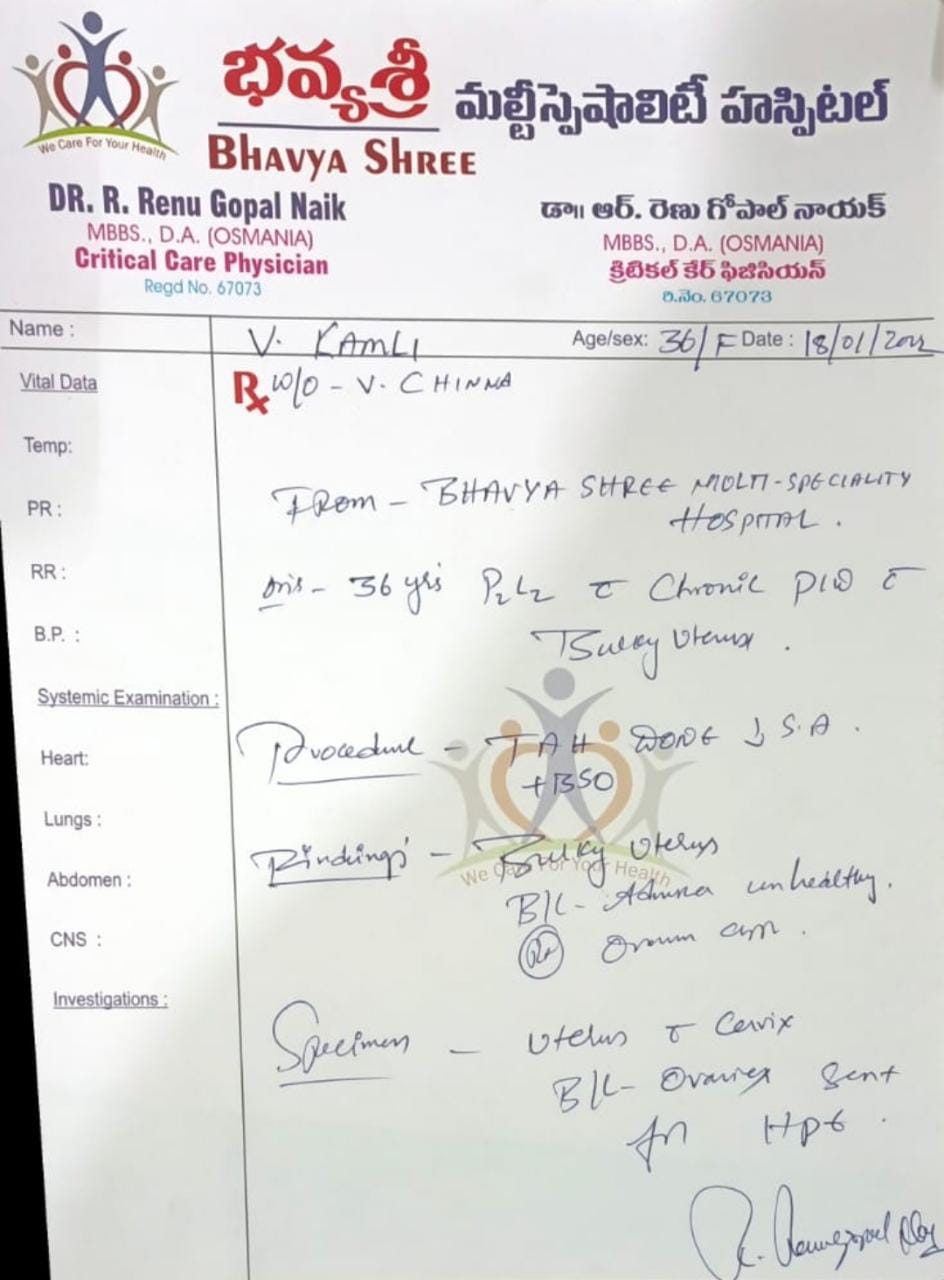 We Care For Your Health
భవ్యశ్రీ మల్టీస్పెషాలిటీ హాస్పిటల్
BHAVYA SHREE
DR. R. Renu Gopal Naik
MBBS., D.A. (OSMANIA)
Critical Care Physician
Regd No. 67073
డా॥ ఆర్. రెణు గోపాల్ నాయక్
MBBS., D.A. (OSMANIA)
క్రిటికల్ కేర్ ఫిజిసియన్
రి.నెం. 67073
Name : V. KAMLI Age/sex: 36/F Date : 18/01/2022
Vital Data
Rx W/O - V. CHINNA
Temp:
PR :
FROM - BHAVYA SHREE MULTI-SPECIALITY
HOSPITAL .
RR :
36 yrs P2L2 c̄ Chronic PID c̄
B.P. :
Bulky Uterus .
Systemic Examination :
Procedure - TAH DONE S.A .
+ BSO
Heart:
Lungs :
Findings - Bulky Uterus
We Care For Your Health
Abdomen :
B/L - unhealthy.
CNS :
Rt
Investigations :
Specimen - Uterus c̄ Cervix
B/L - Ovaries Sent
for HPE .